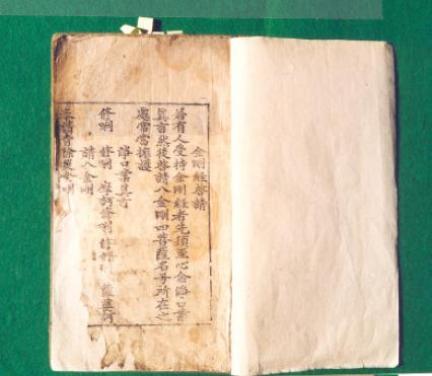 金剛經啓請
若有人受持金剛經者先須至心念淨口業
眞言然後啓請八金剛四菩薩名号所在之
處常當擁護
淨口業眞言
修唎 修唎 摩訶修唎 修修唎 薩婆訶
請八金剛
奉請青除災金剛